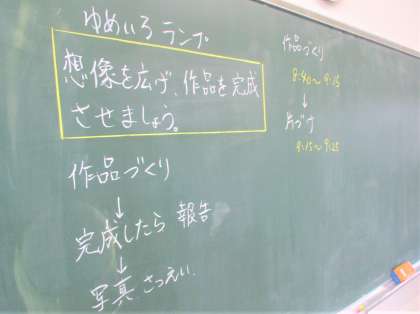 ゆめいろランプ
想像を広げ、作品を完成
させましょう。
作品づくり
↓
完成したら 報告
↓
写真さつえい.
作品づくり
8:40〜9:15
↓
片づけ
9:15〜9:25